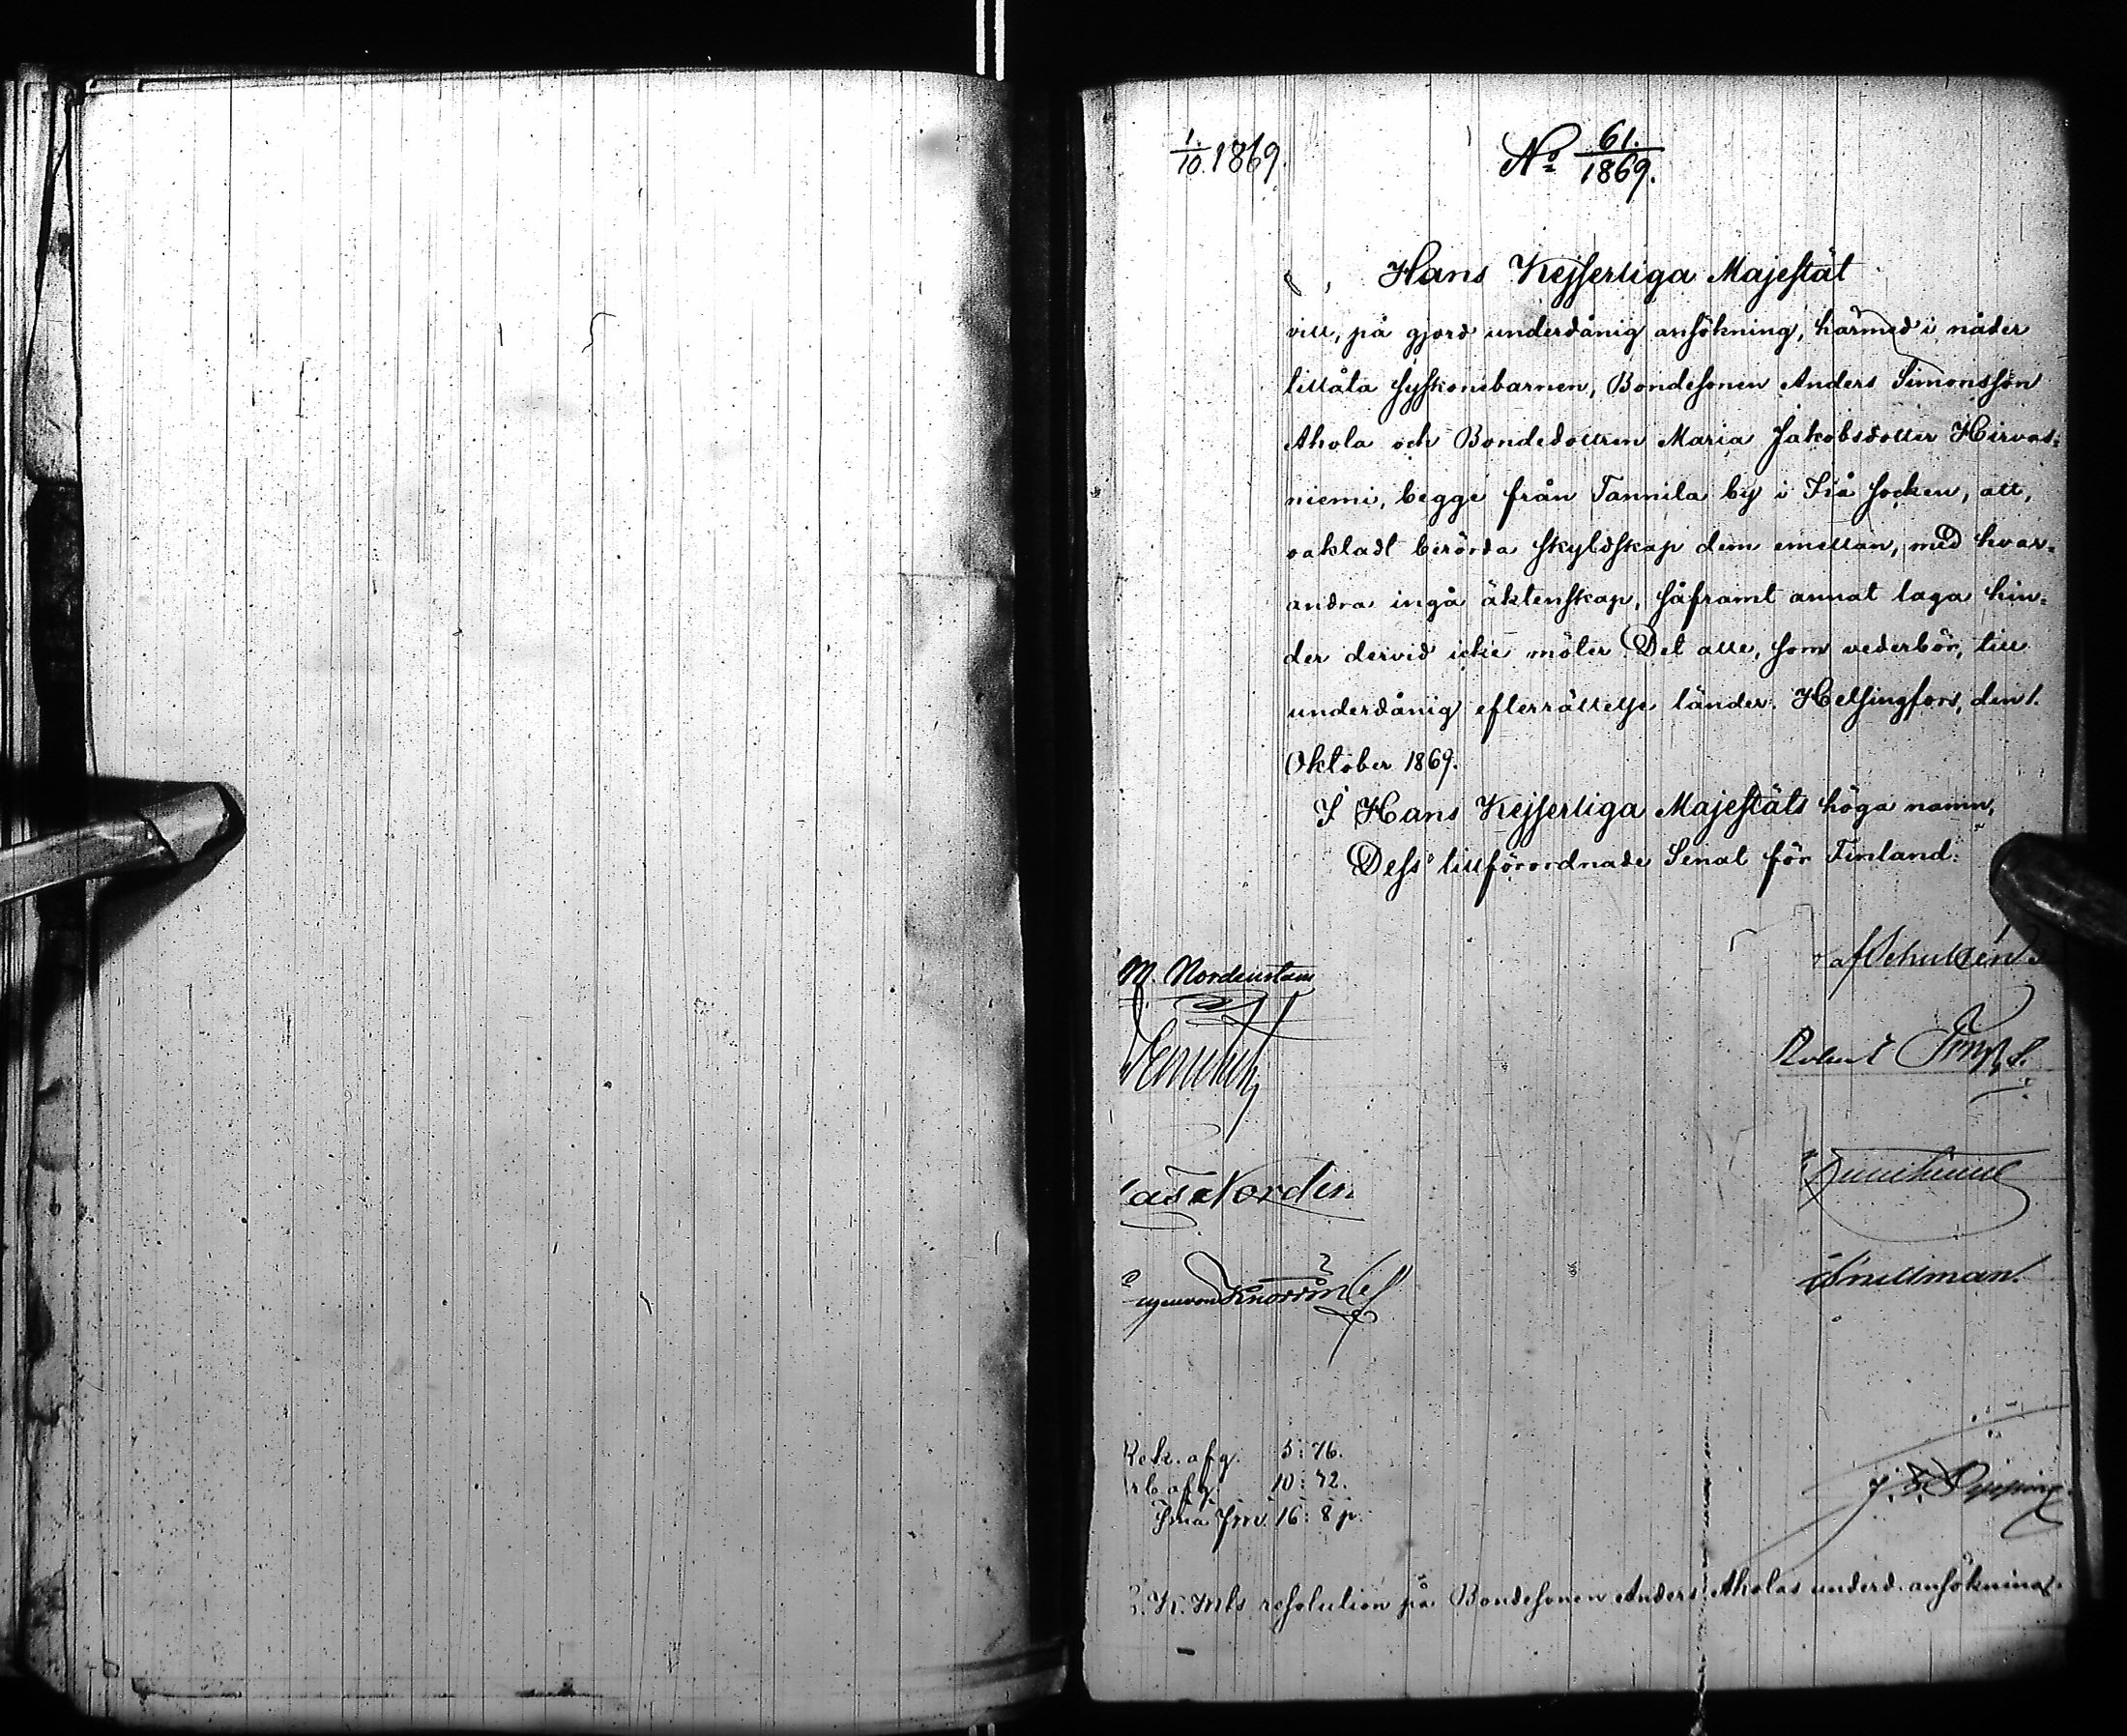 1./10. 1869.
No 61./1869.
Hans Kejserliga Majestät
vill, på gjord underdånig ansökning, härmed i nåder
tillåta syskonebarnen, Bondesonen Anders Simonsson
Ahola och Bondedottren Maria Jakobsdotter Hirvas=
niemi, begge från Tannila by i Ijå socken, att,
oaktadt berörda skyldskap dem emellan, med hvar=
andra ingå äktenskap, såframt annat laga hin=
der dervid icke möter. Det alle, som vederbör, till
underdånig efterrättelse länder. Helsingfors, den 1.
Oktober 1869.
I Hans Kejserliga Majestäts höga namn,
Dess tillförordnade Senat för Finland:
M. Nordenstam
af Schultén
Robert
Norden
von Knorring
Snellman.
Rek. afg. 5: 76.
afg. 10: 72.
Sma Fmk. 16: 8 p.
J. J. Pipping
H. K. Mts resolution på Bondesonen Anders Aholas underd. ansökning.